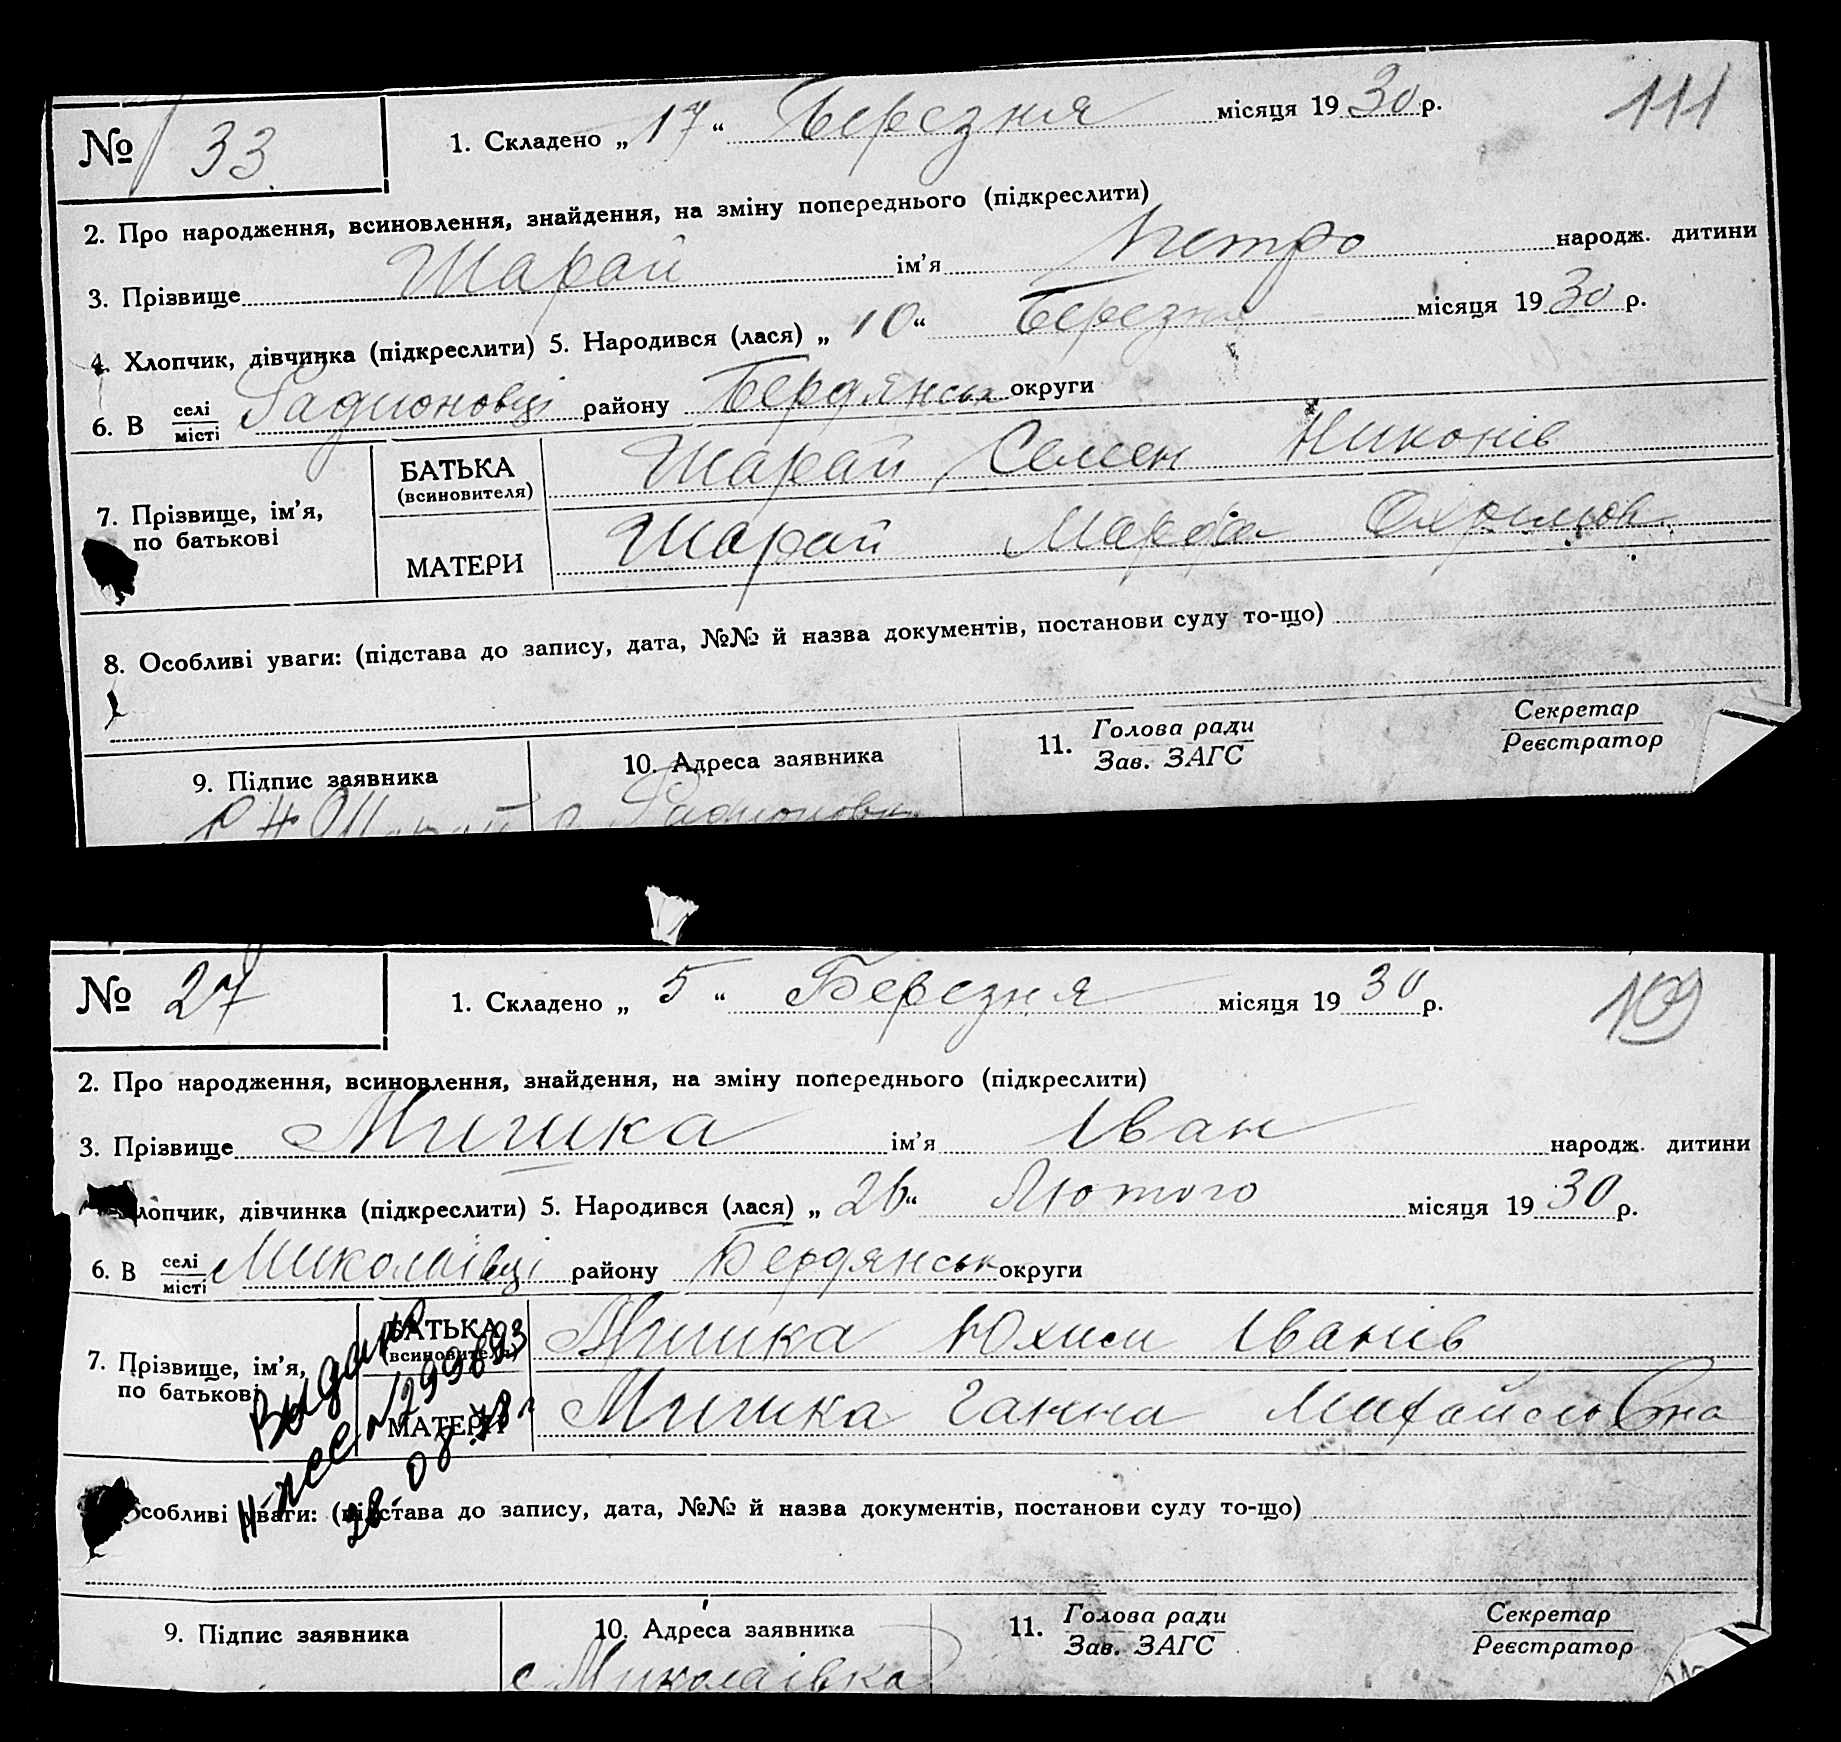 № 33. 1. Складено „ 17 “ Березня місяця 19 30 р. 111
2. Про народження, всиновлення, знайдення, на зміну попереднього (підкреслити)
3. Прізвище Шарай ім’я Петро народж. дитини
4. Хлопчик, дівчинка (підкреслити) 5. Народився (лася) „ 10 “ Березня місяця 19 30 р.
6. В селі/місті Радионовці району Бердянськ округи
7. Прізвище, ім’я, по батькові
БАТЬКА (всиновителя) Шарай, Семен Никонів
МАТЕРИ Шарай Марфа
8. Особливі уваги: (підстава до запису, дата, №№ й назва документів, постанови суду то-що)
9. Підпис заявника 10. Адреса заявника 11. Голова ради/Зав. ЗАГС Секретар/Реєстратор
С Н Шарай с. Радионовка
№ 27 1. Складено „ 5 “ Березня місяця 19 30 р. 109
2. Про народження, всиновлення, знайдення, на зміну попереднього (підкреслити)
3. Прізвище Мишка ім’я Іван народж. дитини
лопчик, дівчинка (підкреслити) 5. Народився (лася) „ 26 “ Лютого місяця 19 30 р.
6. В селі/місті Миколаївці району Бердянськ округи
7. Прізвище, ім’я, по батькові
БАТЬКА (всиновителя) Мишка Юхим Іванів
МАТЕРИ Мишка Ганна Михайловна
Выдано
28-08
собливі уваги: (підстава до запису, дата, №№ й назва документів, постанови суду то-що)
9. Підпис заявника 10. Адреса заявника 11. Голова ради/Зав. ЗАГС Секретар/Реєстратор
с Миколаївка